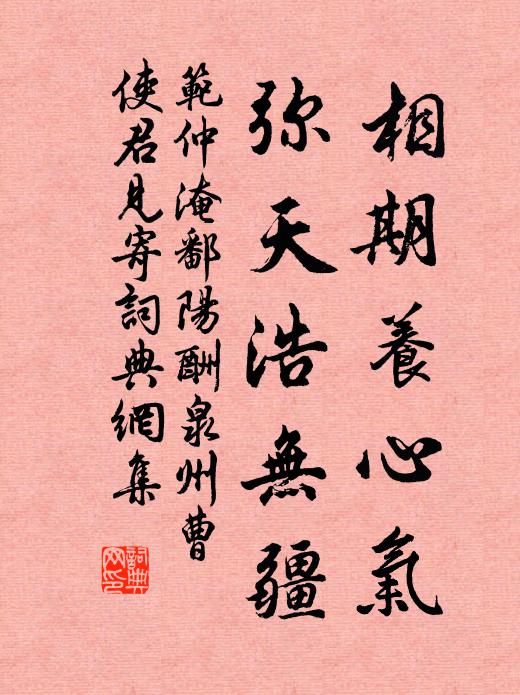 相期養心氣
弥天浩無疆
範仲淹鄱陽酬泉州曹
使君見寄詞典網集
詞典
网印